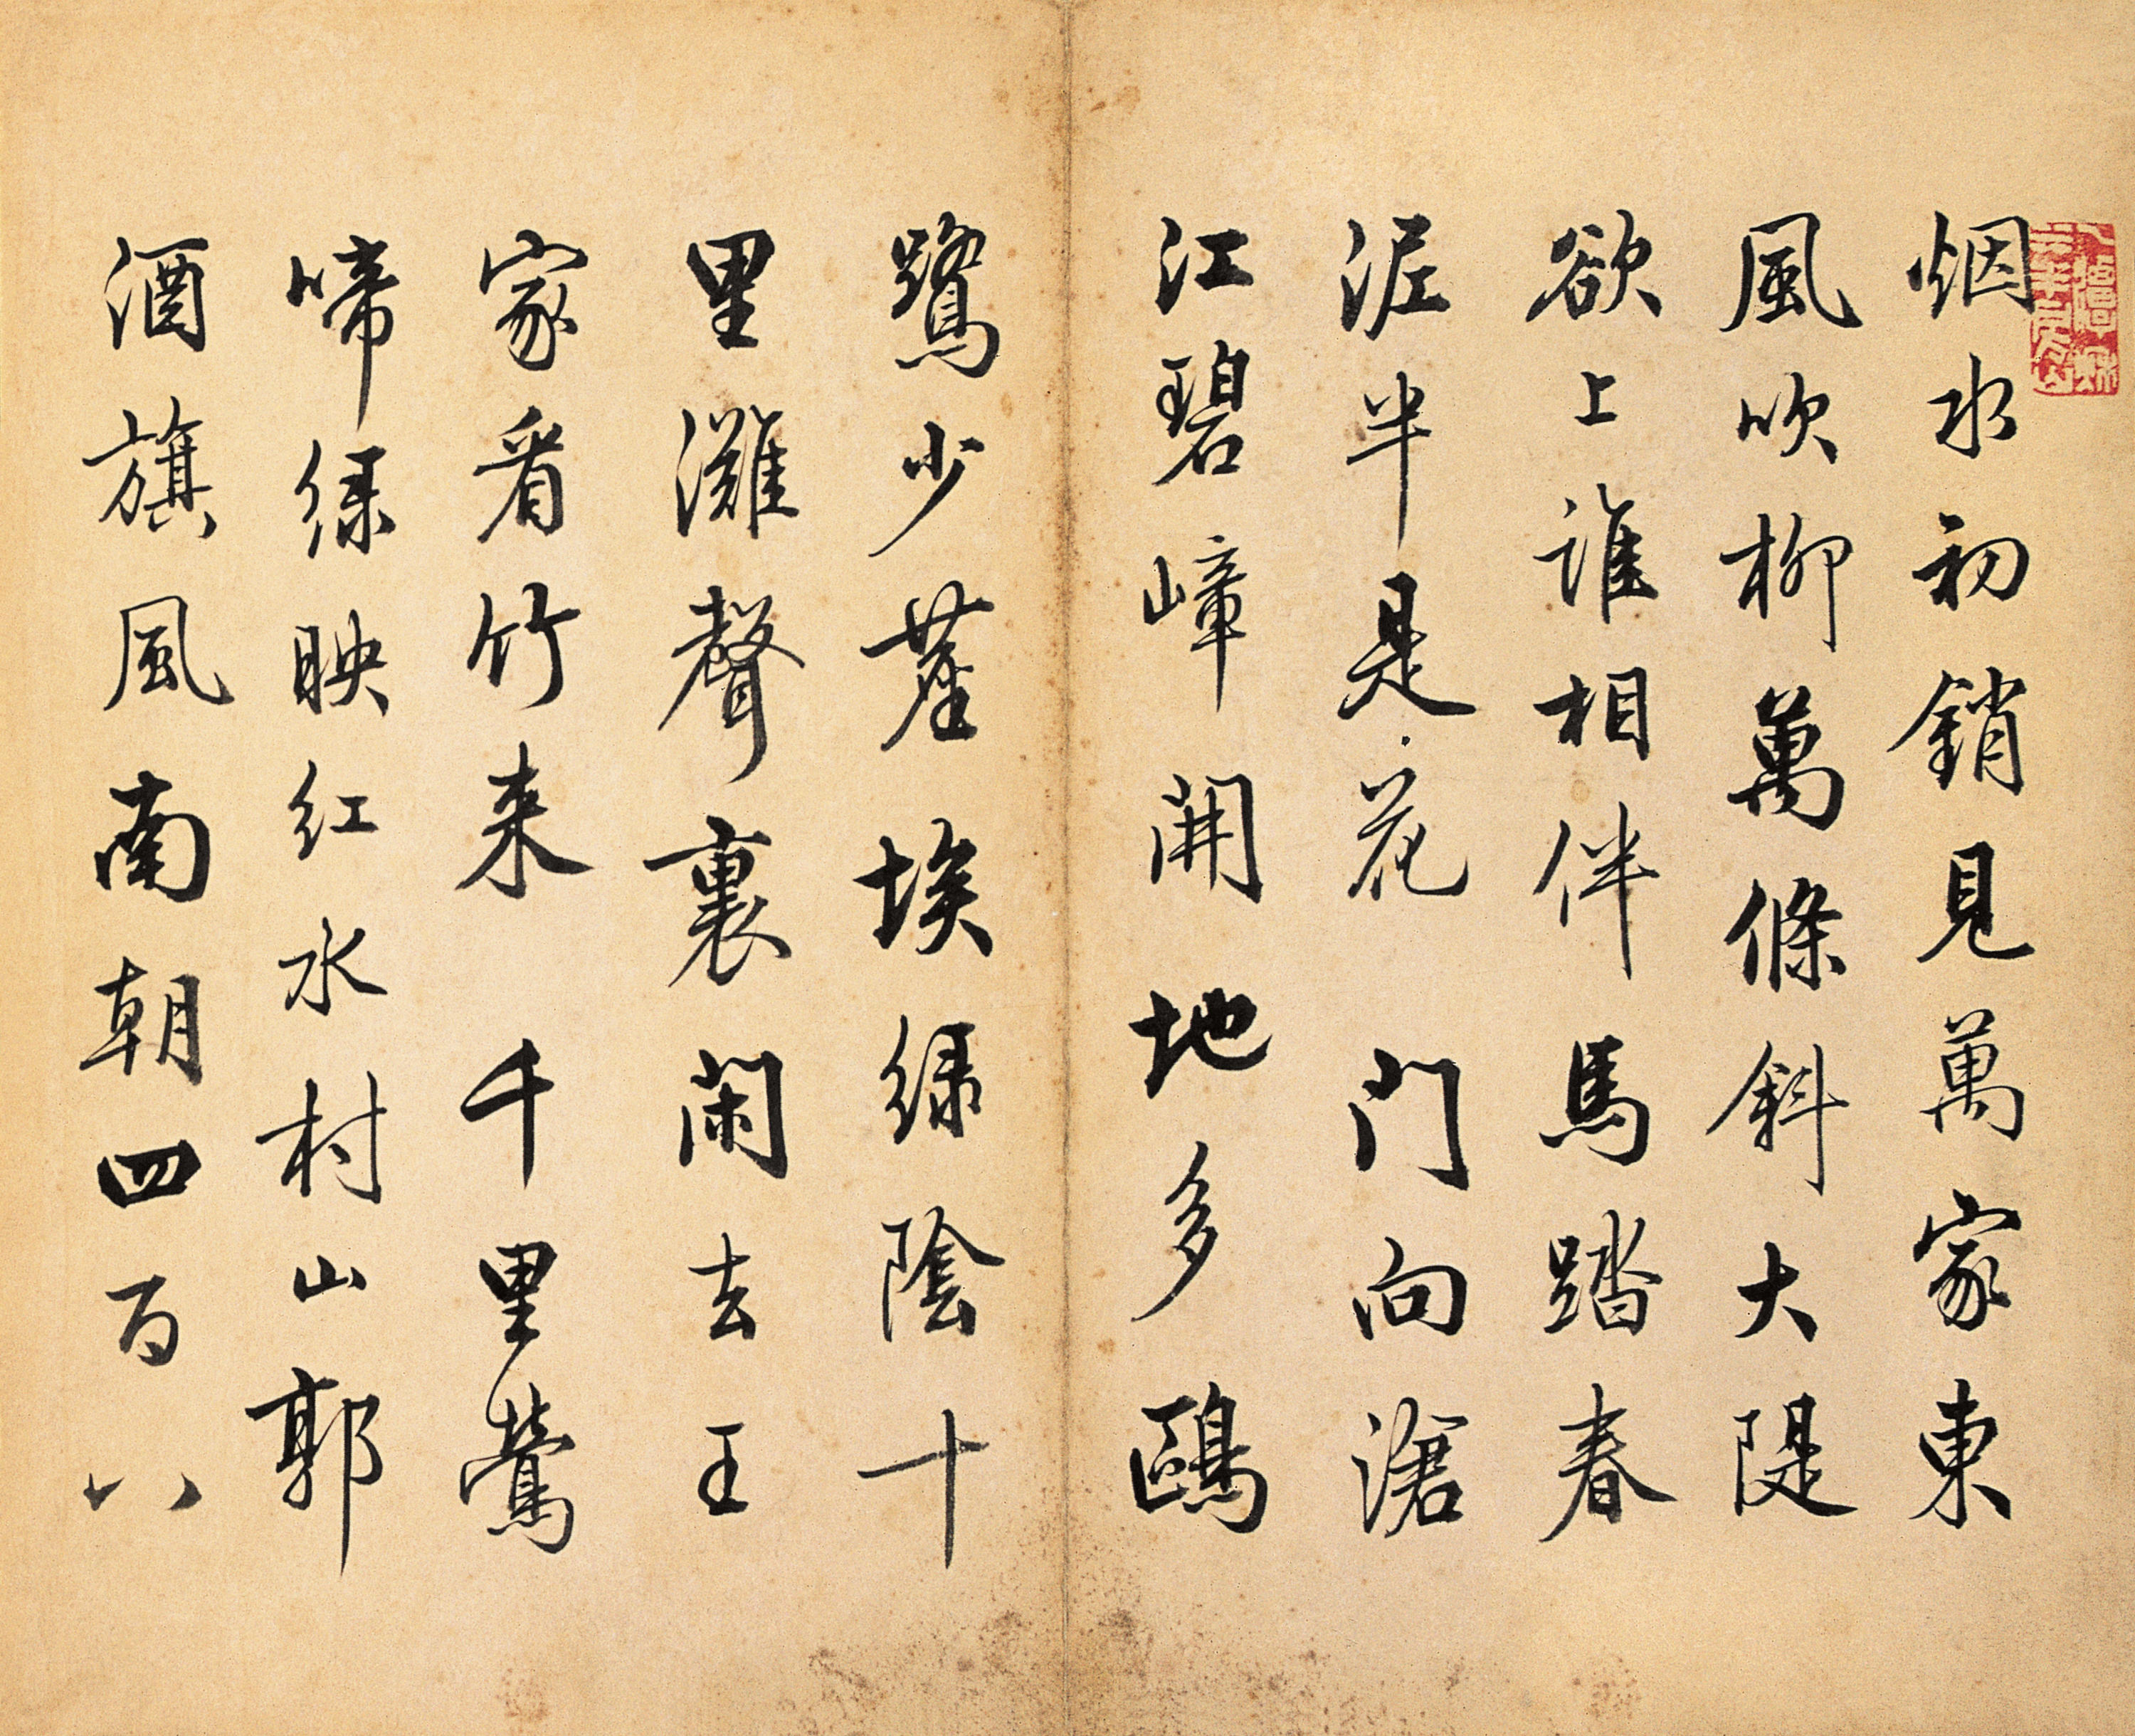 烟水初銷見萬家東
風吹柳萬條斜大隄
欲上誰相伴馬踏春
泥半是花門向滄
江碧嶂開地多鷗
鷺少塵埃綠陰十
里灘聲裏閑去王
家看竹来千里鶯
啼綠映紅水村山郭
酒旗風南朝四百八